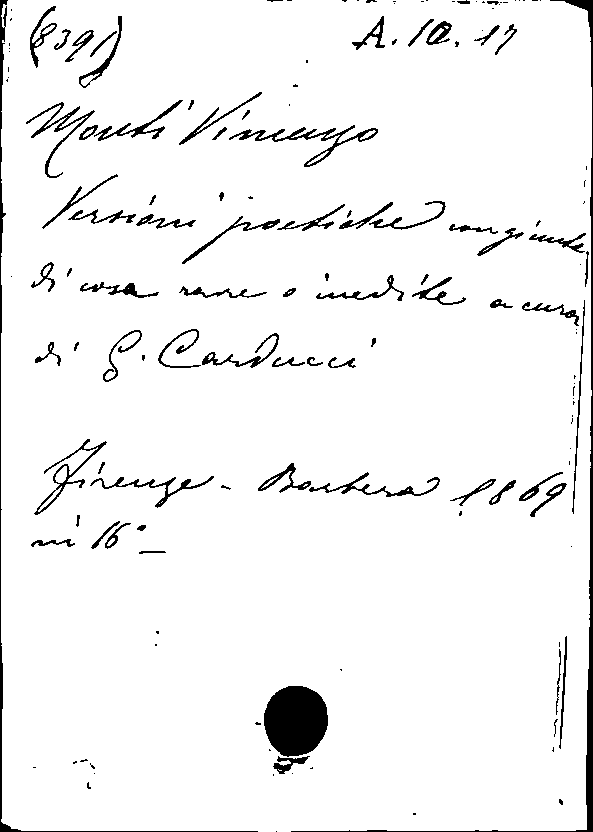 (8391) A. 10. 17
Monti Vincenzo
Versioni poetiche con giunta
di cosa rare o inedite a cura
di G. Carducci
Firenze - Barbera 1869
in 16° -